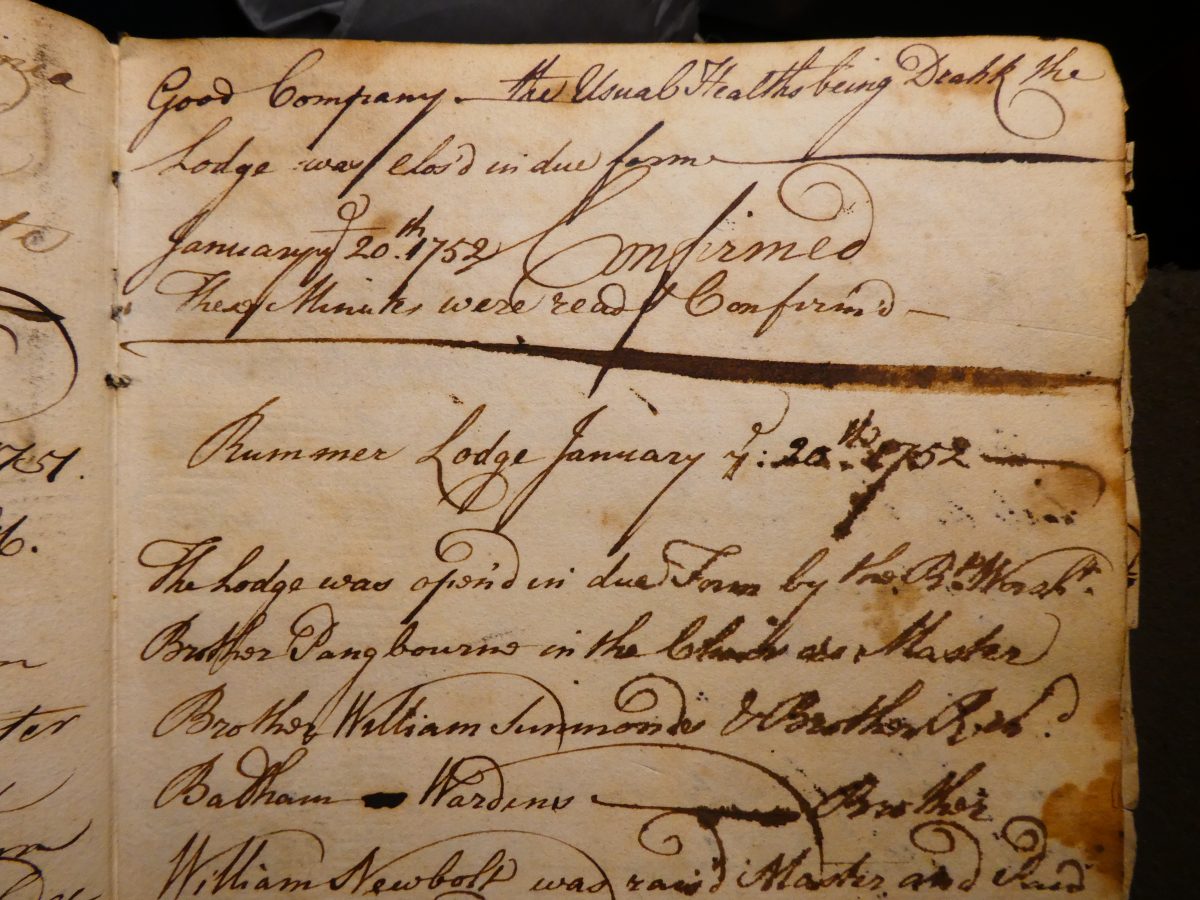 Good Company. the Usual Healths being Drank the
Lodge was Clos'd in due form
January ye 20.th 1752 Confirmed
These Minutes were read & Confirm'd
Rummer Lodge January ye: 20.th 1752
The Lodge was open'd in due Form by the Rt. Worshl.
Brother Pangbourne in the Chair as Master
Brother William Summonds & Brother Richd.
Badham Wardens Brother
William Newbolt was rais'd Master and Paid
1751.